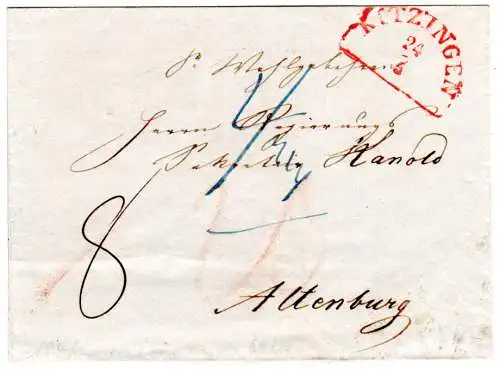 KITZINGEN
24
Sr Wohlgebohren
Herrn Regierungs
Sekretär Kanold
8
Altenburg